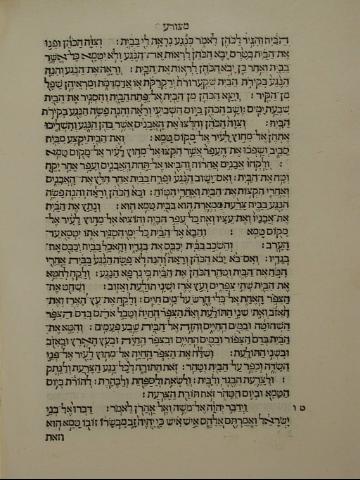 מצורע
הבית והגיד לכהן לאמר כנגע נראה לי בבית: וצוה הכהן ופנו
את הבית בטרם יבא הכהן לראות את הנגע ולא יטמא כל אשר
בבית ואחר כן יבא הכהן לראות את הבית: וראה את הנגע והנה
הנגע בקירת הבית שקערורת ירקרקת או אדמדמת ומראיהן שפל
מן הקיר: ויצא הכהן מן הבית אל פתח הבית והסגיר את הבית
שבעת ימים: ושב הכהן ביום השביעי וראה והנה פשה הנגע בקירת
הבית: וצוה הכהן וחלצו את האבנים אשר בהן הנגע והשליכו
אתהן אל מחוץ לעיר אל מקום טמא: ואת הבית יקצע מבית
סביב ושפכו את העפר אשר הקצו אל מחוץ לעיר אל מקום טמא
: ולקחו אבנים אחרות והביאו אל תחת האבנים ועפר אחר יקח
וטח את הבית: ואם ישוב הנגע ופרח בבית אחר חלץ את האבנים
ואחרי הקצות את הבית ואחרי הטוח: ובא הכהן וראה והנה פשה
הנגע בבית צרעת ממארת הוא בבית טמא הוא: ונתץ את הבית
את אבניו ואת עציו ואת כל עפר הבית והוציא אל מחוץ לעיר אל
מקום טמא: והבא אל הבית כל ימי הסגיר אתו יטמא עד
הערב: והשכב בבית יכבס את בגדיו והאכל בבית יכבס את
בגדיו: ואם בא יבא הכהן וראה והנה לא פשה הנגע בבית אחרי
הטח את הבית וטהר הכהן את הבית כי נרפא הנגע: ולקח לחטא
את הבית שתי צפרים ועץ ארז ושני תולעת ואזוב: ושחט את
הצפר האחת אל כלי חרש על מים חיים: ולקח את עץ הארז ואת
האזב ואת שני התולעת ואת הצפר החיה וטבל אתם בדם הצפר
השחוטה ובמים החיים והזה אל הבית שבע פעמים: וחטא את
הבית בדם הצפור ובמים החיים ובצפר החיה ובעץ הארז ובאזב
ובשני התולעת: ושלח את הצפר החיה אל מחוץ לעיר אל פני
השדה וכפר על הבית וטהר: זאת התורה לכל נגע הצרעת ולנתק
: ולצרעת הבגד ולבית: ולשאת ולספחת ולבהרת: להורת ביום
הטמא וביום הטהר זאת תורת הצרעת:
טו וידבר יהוה אל משה ואל אהרן לאמר: דברו אל בני
ישראל ואמרתם אלהם איש איש כי יהיה זב מבשרו זובו טמא הוא
וזאת